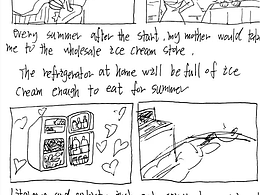 Every summer after the start, my mother would take
me to the wholesale ice cream store.
The refrigerator at home will be full of ice
cream enough to eat for summer